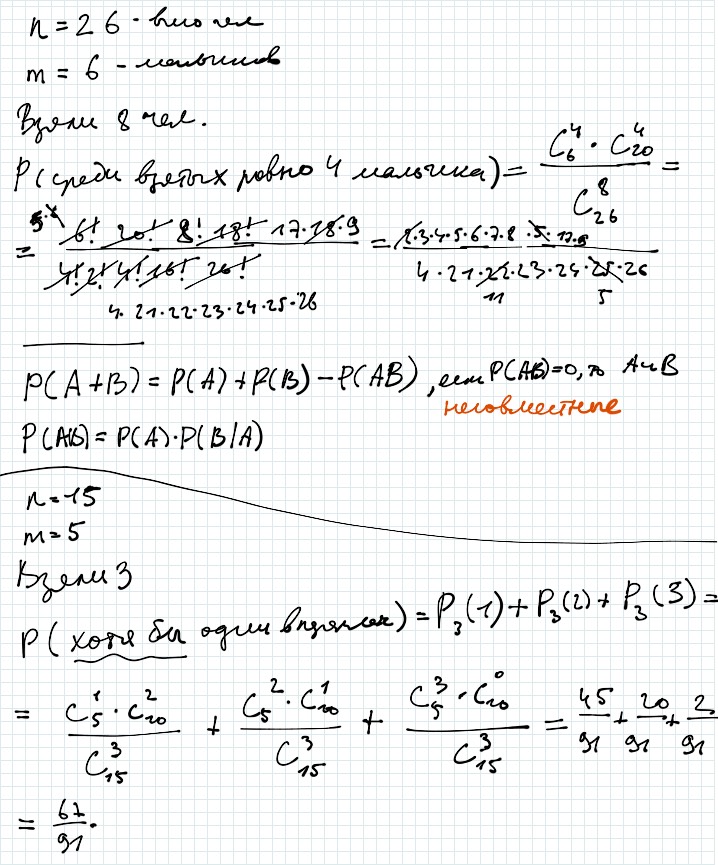 n = 26 - всего чел
m = 6 - мальчиков
Взяли 8 чел.
P(среди взятых ровно 4 мальчика) = C₆⁴ · C₂₀⁴ / C₂₆⁸ =
= 5·6 6! 20! 8! 18! 17·18·9 / 4! 2! 4! 16! 26! = 2·3·4·5·6·7·8 · 5 · 17·9 / 4·21·22·23·24·25·26
4·21·22·23·24·25·26 11 5
P(A+B) = P(A) + P(B) – P(AB), если P(AB)=0, то A и B
несовместные
P(AB) = P(A)·P(B/A)
n=15
m=5
Взяли 3
P(хотя бы один в) = P₃(1) + P₃(2) + P₃(3) =
= C₅¹ · C₁₀² / C₁₅³ + C₅² · C₁₀¹ / C₁₅³ + C₅³ · C₁₀⁰ / C₁₅³ = 45/91 + 20/91 + 2/91
= 67/91.